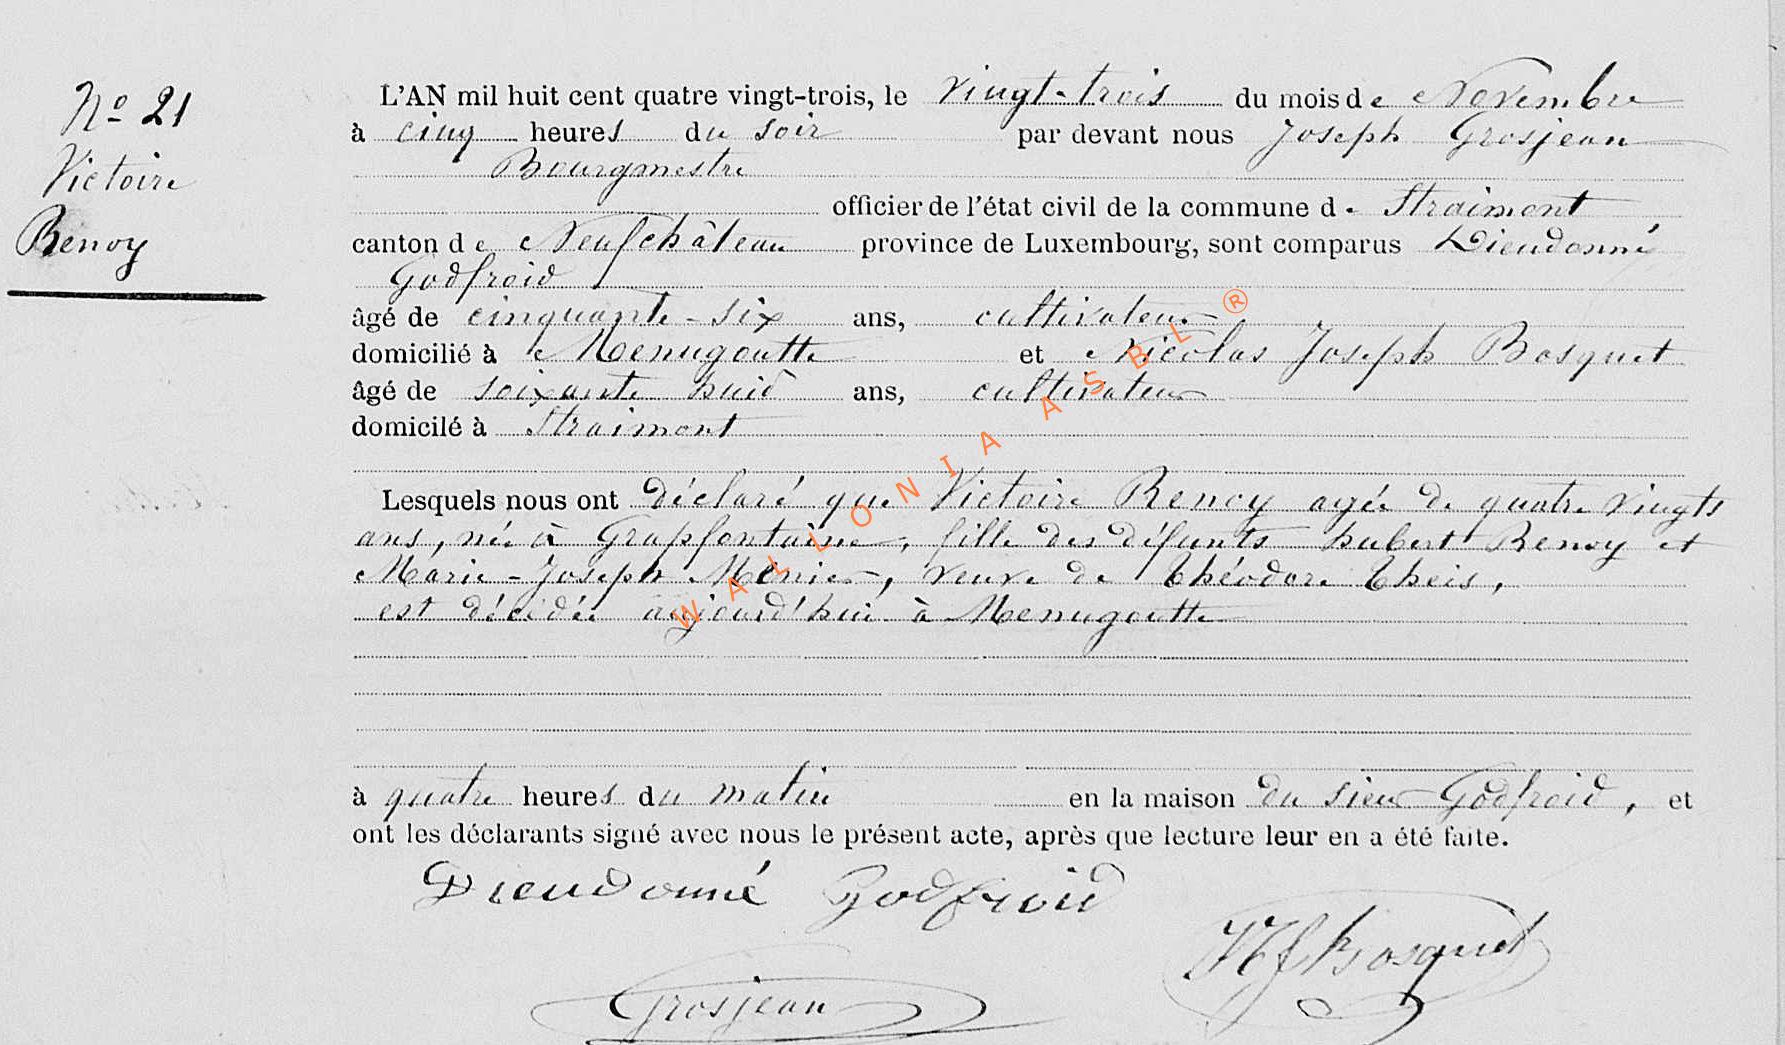 No 21
Victoire
Renoy
L'AN mil huit cent quatre vingt-trois, le vingt-trois du mois de Novembre
à cinq heures du soir par devant nous Joseph Grosjean
Bourgmestre
officier de l'état civil de la commune de Straimont
canton de Neufchâteau province de Luxembourg, sont comparus Dieudonné
Godfroid
âgé de cinquante-six ans, cultivateur
domicilié à Menugoutte et Nicolas Joseph Bosquet
âgé de soixante huit ans, cultivateur
domicilé à Straimont
Lesquels nous ont déclaré que Victoire Renoy agée de quatre vingts
ans, née à Grapfontaine, fille des défunts hubert Renoy et
Marie-Joseph, veuve de Théodore Theis,
est décédée aujourd'hui à Menugoutte
à quatre heures du matin en la maison du sieur Godfroid, et
ont les déclarants signé avec nous le présent acte, après que lecture leur en a été faite.
Dieudonné Godfroid
NJ Bosquet
Grosjean
WALLONIA ASBL ®